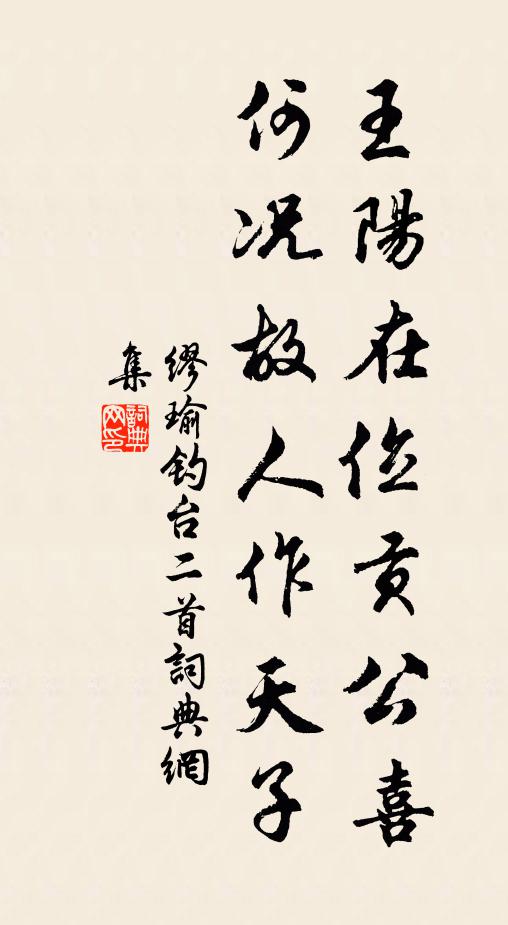 王陽在位貢公喜
何况故人作天子
繆瑜釣台二首詞典網
集
詞典
网印